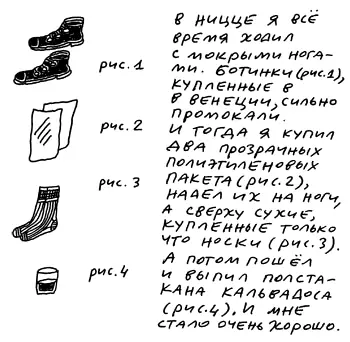 В НИЦЦЕ Я ВСЁ
ВРЕМЯ ХОДИЛ
С МОКРЫМИ НОГА-
МИ. БОТИНКИ (РИС.1),
КУПЛЕННЫЕ В
В ВЕНЕЦИИ, СИЛЬНО
ПРОМОКАЛИ.
И ТОГДА Я КУПИЛ
ДВА ПРОЗРАЧНЫХ
ПОЛИЭТИЛЕНОВЫХ
ПАКЕТА (РИС.2),
НАДЕЛ ИХ НА НОГИ,
А СВЕРХУ СУХИЕ,
КУПЛЕННЫЕ ТОЛЬКО
ЧТО НОСКИ (РИС.3).
А ПОТОМ ПОШЁЛ
И ВЫПИЛ ПОЛСТА-
КАНА КАЛЬВАДОСА
(РИС.4). И МНЕ
СТАЛО ОЧЕНЬ ХОРОШО.
РИС.1
РИС.2
РИС.3
РИС.4